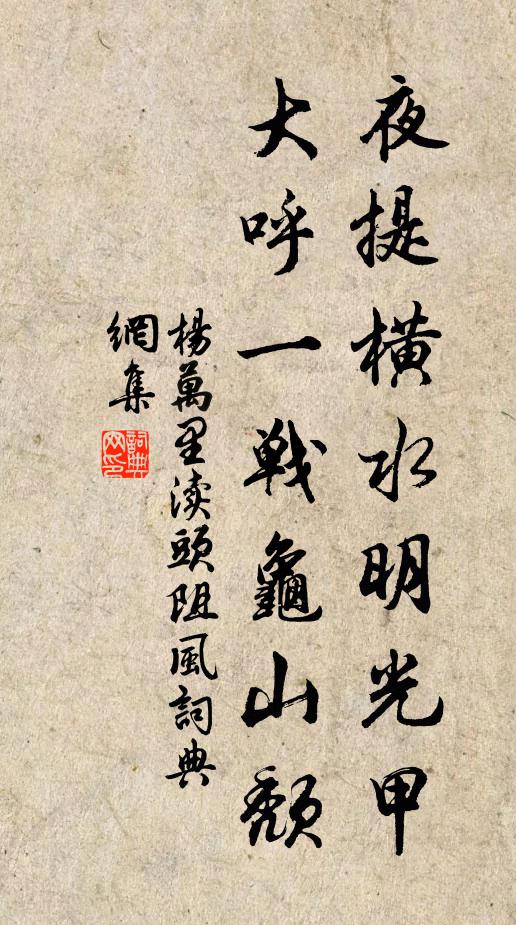 夜提橫水明光甲
大呼一戰龜山頹
楊萬里渎頭阻風詞典
網集
詞典網印